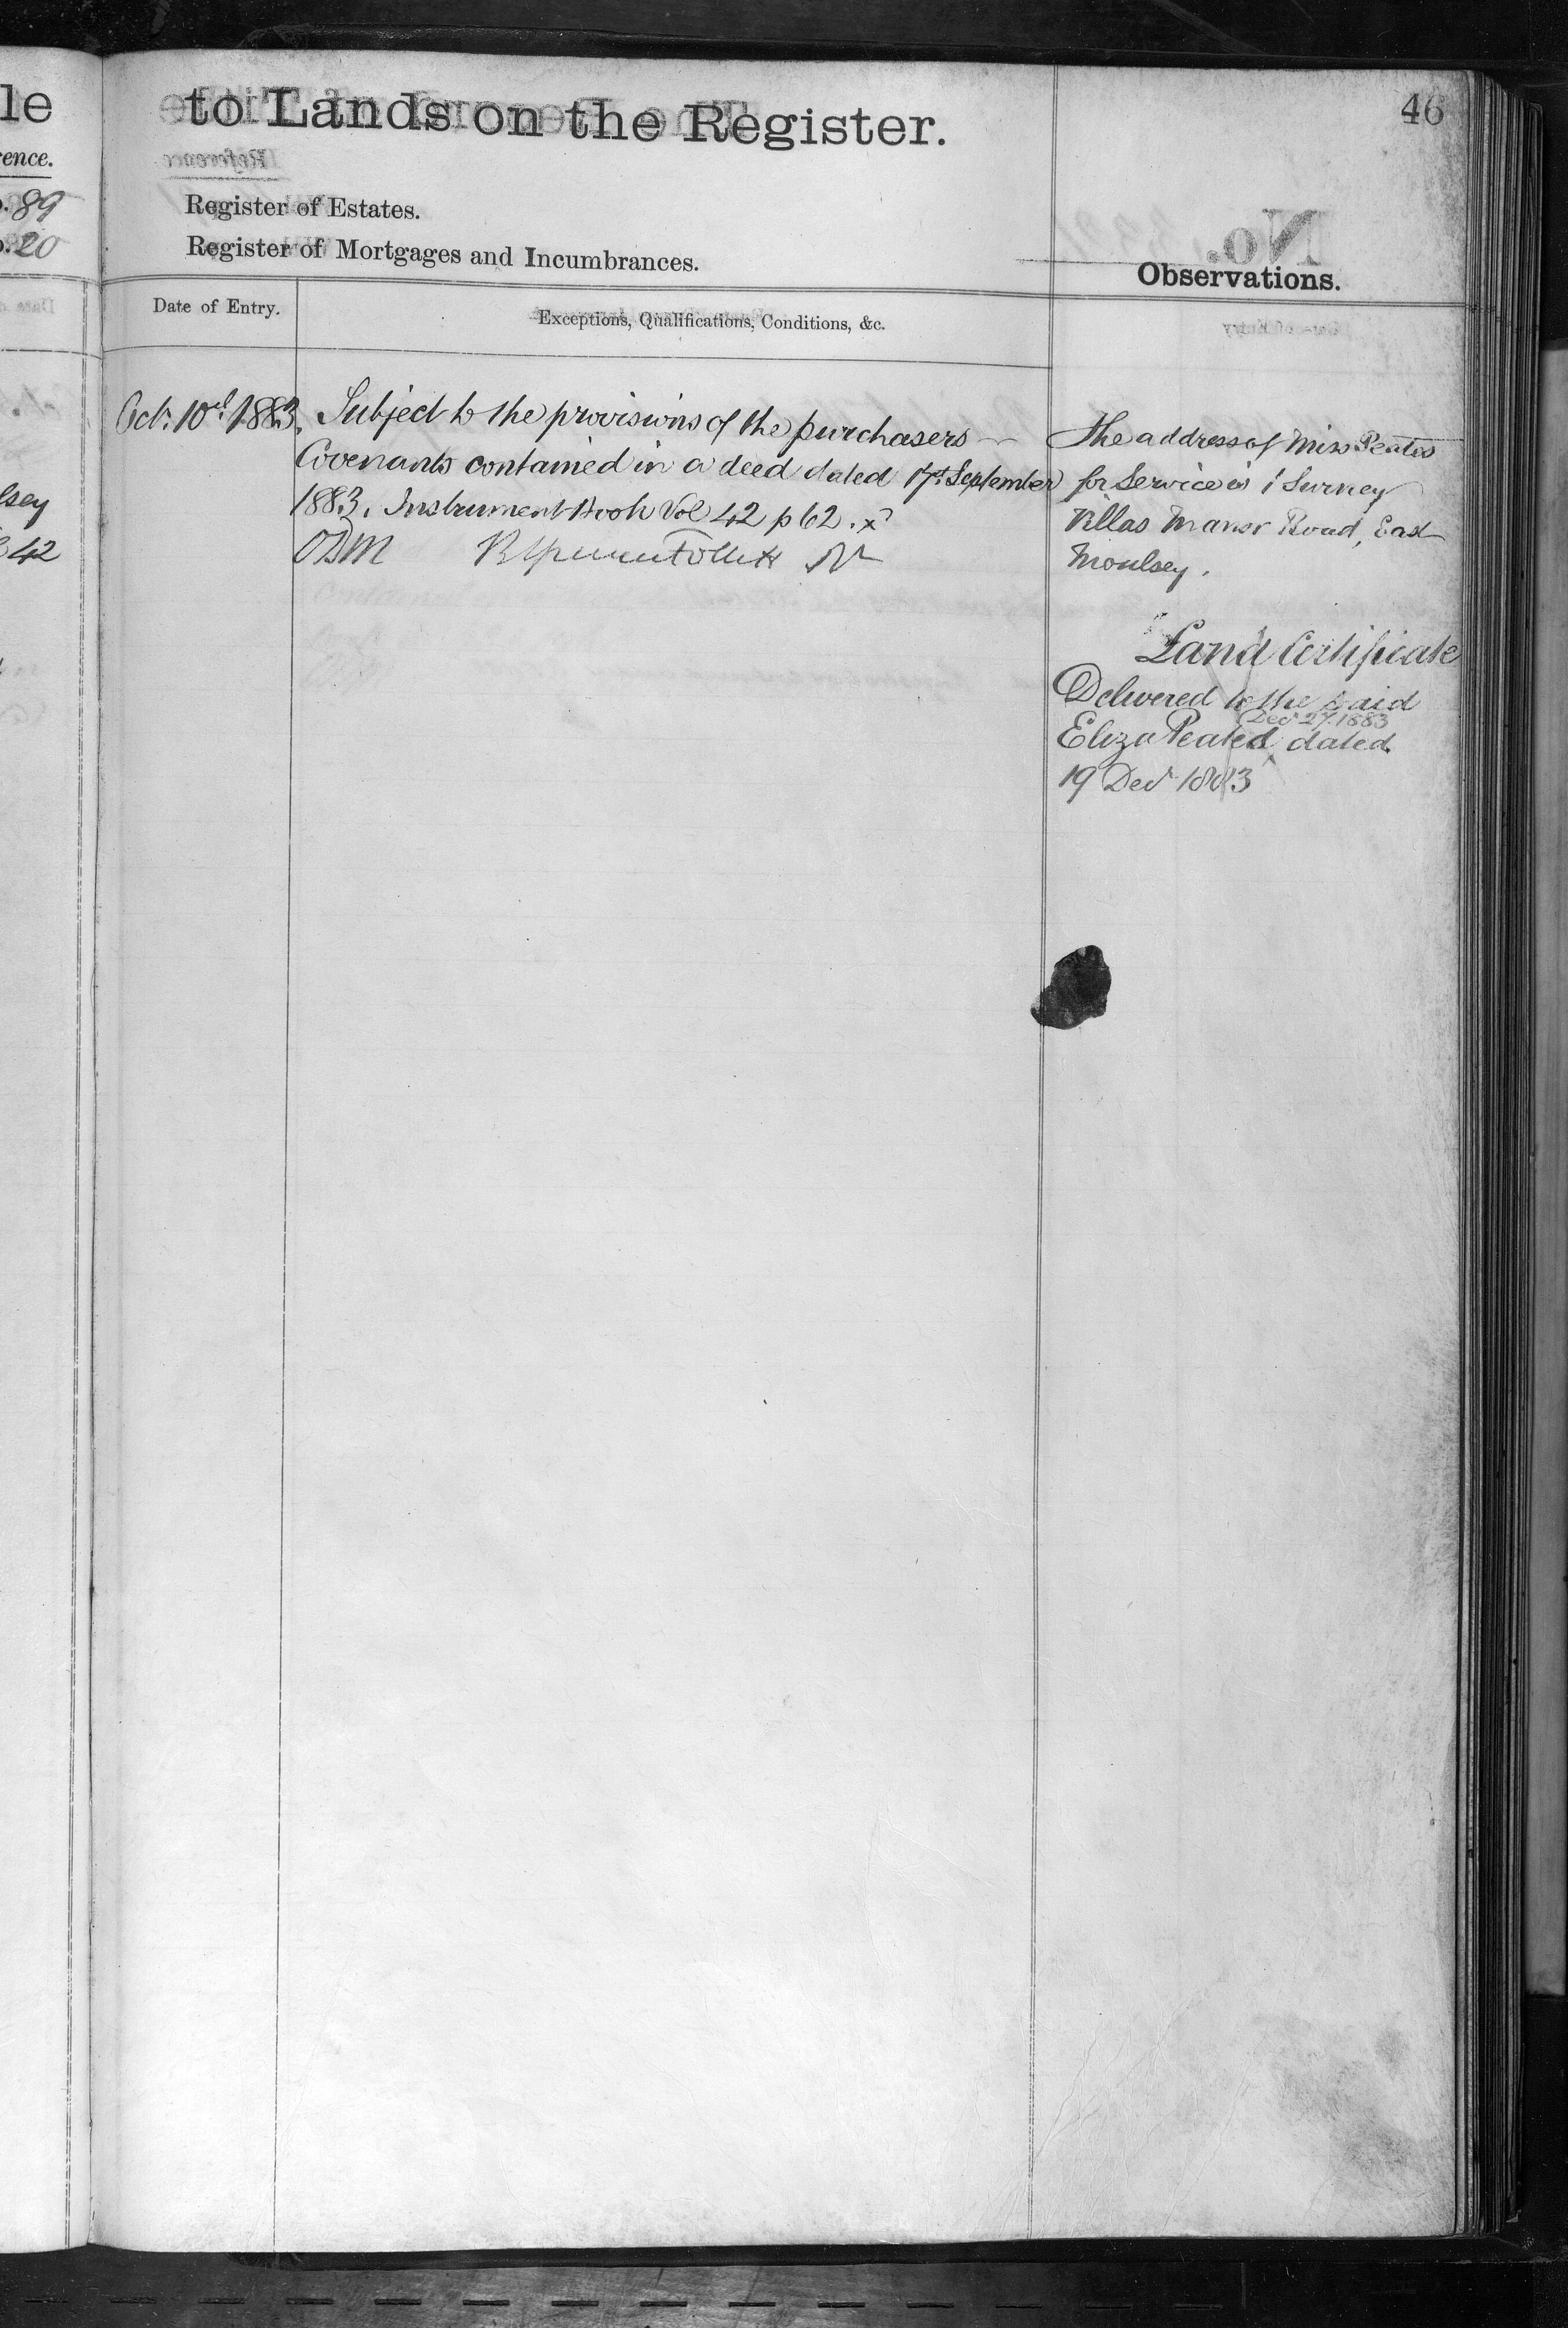 le
to Lands on the Register.
46
ence.
Register of Estates.
89
Register of Mortgages and Incumbrances.
20
Observations.
Date of Entry.
Exceptions, Qualifications, Conditions, &c.
Oct. 10th 1883.
Subject to the provisions of the purchasers
Covenants contained in a deed dated 17th September
1883. Instrument Book Vol 42 p 62. x
ODM
The address of Miss Peates
for Service is 1 Surrey
Villas Manor Road, East
Moulsey.
lsey
42
Land Certificate
Delivered to the said
Dec 27. 1883
Eliza Peates dated
19 Dec 1883